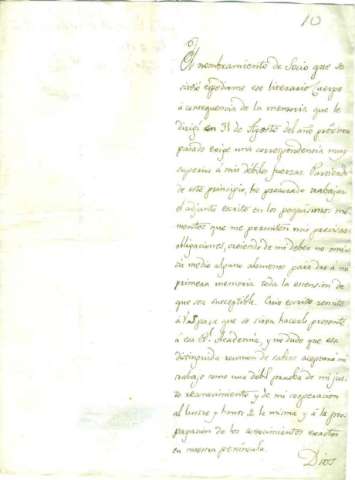 10
El nombramiento de Socio que se
sirvió expedirme ese literario Cuerpo
á consequencia de la memoria que le
dirigí en 31 de Agosto del año próximo
pasado exige una correspondencia muy
superior á mis débiles fuerzas. Persuadido
de este principio, he procurado trabajar
el adjunto escrito en los poquísimos mo-
mentos que me permiten mis precisas
obligaciones, creyendo de mi deber no omi-
tir medio alguno al menos para dar á mi
primera memoria toda la extension de
que sea susceptible. Cuio escrito remito
á V.S. para que se sirva hacerlo presente
á esa Academia, y no dudo que esa
distinguida reunion de sabios aceptará mi
trabajo como una debil prueba de mi jus-
to reconocimiento y de mi cooperacion
al lustre y honor de la misma y á la pro-
pagacion de los conocimientos exactos
en nuestra península.
Dios